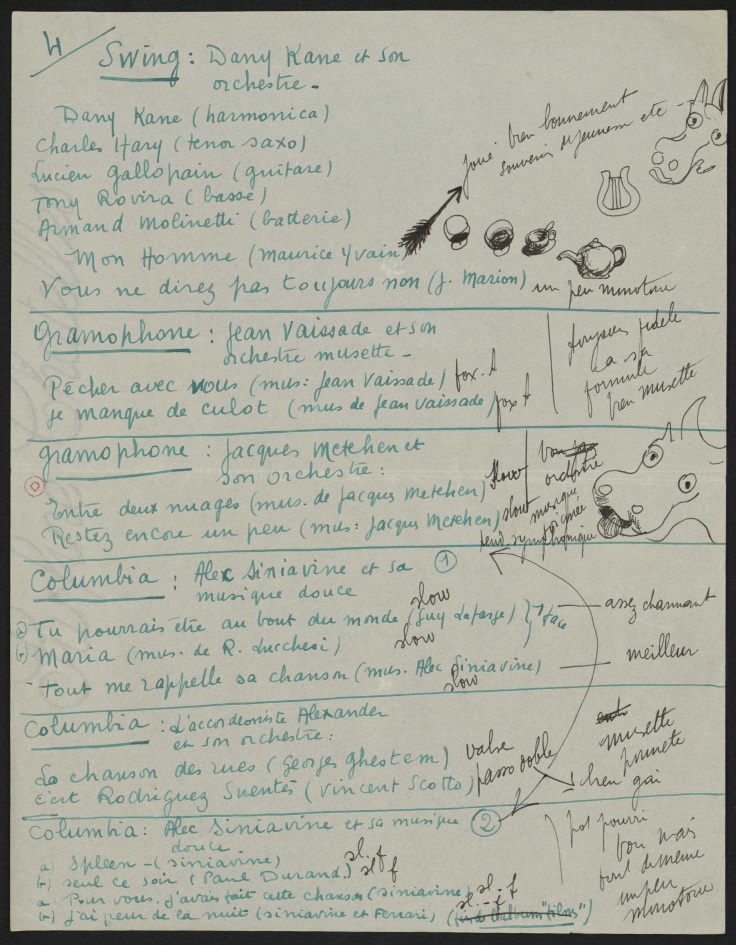 4
Swing : Dany Kane et son
orchestre -
Dany Kane (harmonica)
Charles Hary (tenor saxo)
Lucien Gallopain (guitare)
Tony Rovira (basse)
Armand Molinetti (batterie)
Mon Homme (Maurice Yvain)
joué bien bonnement
souvenir de jeunesse etc --
Vous ne direz pas toujours non (J. Marion) un peu monotone
Gramophone : Jean Vaissade et son
orchestre musette -
Pêcher avec vous (mus: Jean Vaissade) fox. t
Je manque de culot (mus de Jean Vaissade) fox t
toujours fidèle
à sa
formule
bien musette
Gramophone : Jacques Metehen et
son orchestre :
Entre deux nuages (mus. de Jacques Metehen) slow
Restez encore un peu (mus: Jacques Metehen) slow
musique
soignée
tend. symphonique
Columbia : Alex Siniavine et sa ①
musique douce
a) Tu pourrais être au bout du monde (Guy Lafarge) slow
b) Maria (mus. de R. Lucchesi) slow
assez charmant
- Tout me rappelle sa chanson (mus. Alec Siniavine) slow
meilleur
Columbia : L'accordéoniste Alexander
et son orchestre :
La chanson des rues (Georges Ghestem) valse
C'est Rodriguez Suentès (Vincent Scotto) passo doble
musette
honnête
bien gai
Columbia : Alec Siniavine et sa musique ②
douce
a) Spleen - (Siniavine) sl. f
b) Seul ce soir (Paul Durand) sl f
a. Pour vous j'avais fait cette chanson (Siniavine) sl. f
b) j'ai peur de la nuit (Siniavine et Ferrari) sl. - f
pot pourri
bon mais
tout de même
un peu
monotone